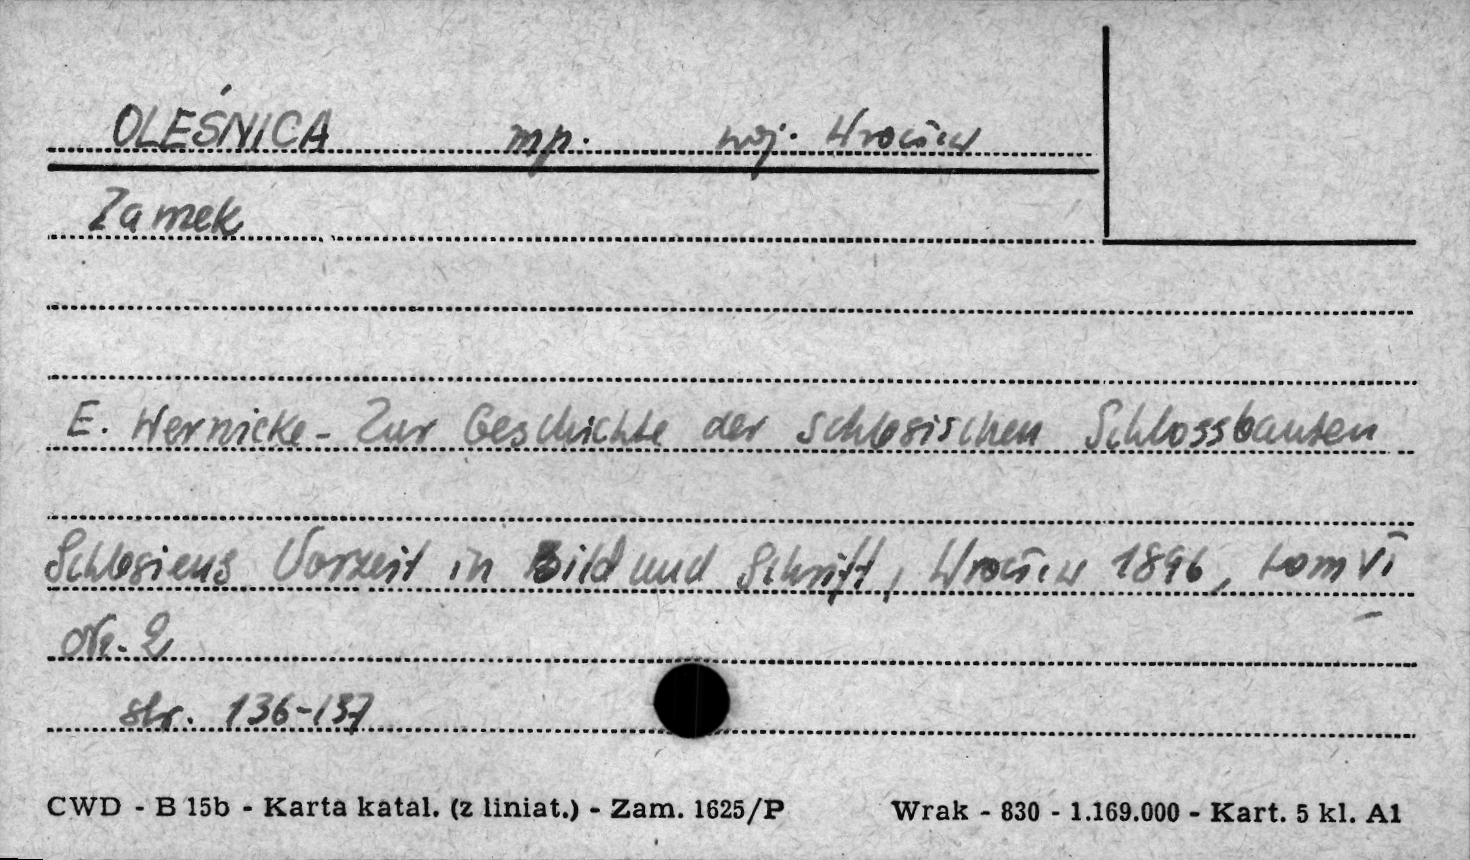 OLEŚNICA mp. woj. Wrocław
Zamek
E. Wernicke - Zur Geschichte der schlesischen Schlossbauten
Schlesiens Vorzeit in Bild und Schrift, Wrocław 1896, tom VI
Nr. 2
str. 136-137
CWD - B 15b - Karta katal. (z liniat.) - Zam. 1625/P
Wrak - 830 - 1.169.000 - Kart. 5 kl. A1